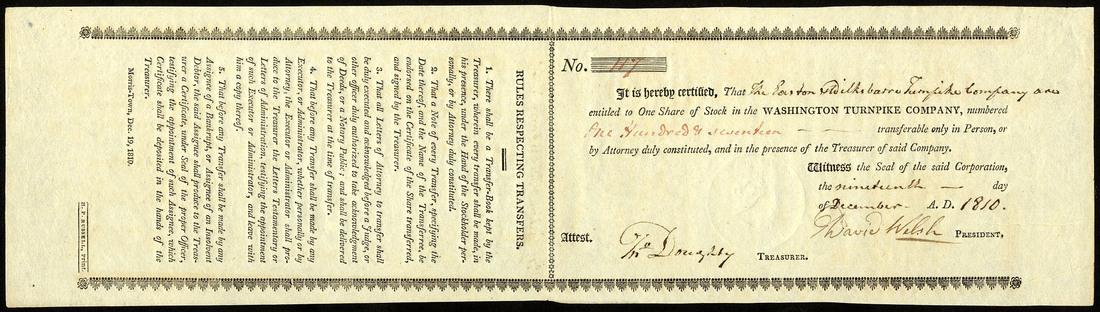 No. 117
It is hereby certified, That The Easton & Wilkbarre Turnpike Company are
entitled to One Share of Stock in the WASHINGTON TURNPIKE COMPANY, numbered
One Hundred & seventeen — — transferable only in Person, or
by Attorney duly constituted, and in the presence of the Treasurer of said Company.
Witness the Seal of the said Corporation,
the nineteenth — day
of December A. D. 1810.
David Welsh PRESIDENT,
Attest.
Tho Doughty TREASURER.
RULES RESPECTING TRANSFERS.
1. There shall be a Transfer-Book kept by the
Treasurer, wherein every transfer shall be made, in
his presence, under the Hand of the Stockholder per-
sonally, or by Attorney duly constituted.
2. That a Note of every Transfer, specifying the
Date thereof, and the Name of the Transferree, be
endorsed on the Certificate of the Share transferred,
and signed by the Treasurer.
3. That all Letters of Attorney to transfer shall
be duly executed and acknowledged before a Judge, or
other officer duly authorized to take acknowledgment
of Deeds, or a Notary Public; and shall be delivered
to the Treasurer at the time of transfer.
4. That before any Transfer shall be made by any
Executor, or Administrator, whether personally or by
Attorney, the Executor or Administrator shall pro-
duce to the Treasurer the Letters Testamentary or
Letters of Administration, testifying the appointment
of such Executor or Administrator, and leave with
him a copy thereof.
5. That before any Transfer shall be made by any
Assignee of a Bankrupt, or Assignee of an Insolvent
Debtor, the said Assignee shall produce to the Treas-
urer a Certificate, under Seal of the proper Officer,
testifying the appointment of such Assignee, which
Certificate shall be deposited in the hands of the
Treasurer.
Morris-Town, Dec. 19, 1810.
H. P. RUSSELL, Print.